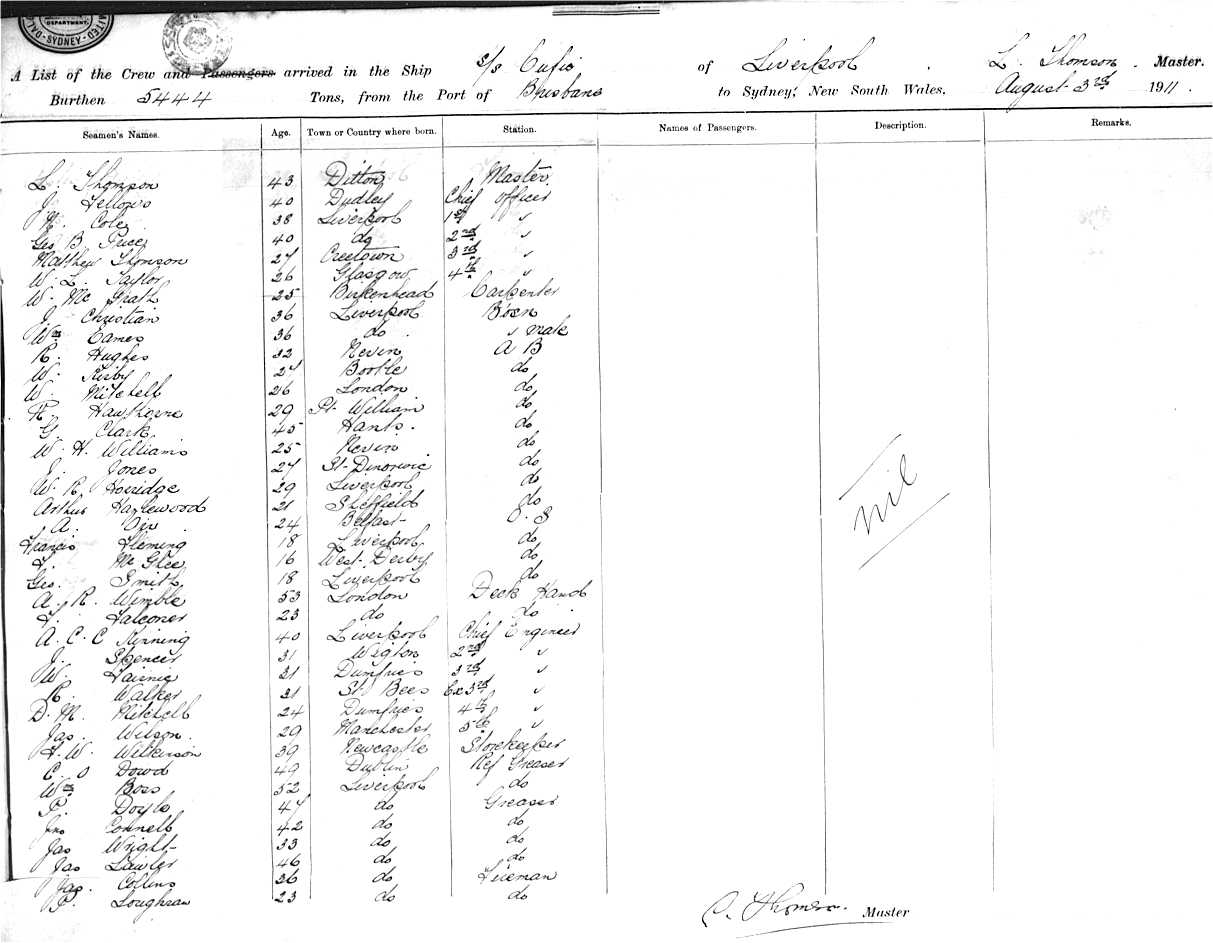 DEPARTMENT.
SYDNEY
A List of the Crew and Passengers arrived in the Ship S/S Cufic of Liverpool. L. Thomson. Master.
Burthen 5444 Tons, from the Port of Brisbane to Sydney, New South Wales. August 3rd 1911.
Seamen's Names. Age. Town or Country where born. Station. Names of Passengers. Description. Remarks.
L. Thomson 43 Ditton Master
J. Fellows 40 Dudley Chief Officer
N. Cole 38 Liverpool 1st "
Geo B. Price 40 do 2nd "
Matthew Thomson 27 Creetown 3rd "
W. L. Taylor 26 Glasgow 4th "
W. Mc Grath 25 Birkenhead Carpenter
J. Christian 36 Liverpool Bosn
Wm Eames 36 do. " mate
R. Hughes 32 Nevin A B
W. Kirby 27 Bootle do
W. Mitchell 26 London do
H. Hawthorne 29 Pt. William do
G. Clark 45 Hants. do
W. H. Williams 25 Nevin do
J. Jones 27 Pt. Dinorwic do
W. R. Horridge 29 Liverpool do
Arthur Hazlewood 21 Sheffield do
A. Orr 24 Belfast O. S
Francis Fleming 18 Liverpool do
Mc Ghee 16 West Derby do
Geo. Smith 18 Liverpool do
A. R. Wimble 53 London Deck Hand
F. Falconer 23 do do
A. C. C Kinning 40 Liverpool Chief Engineer
J. Spencer 31 Wigton 2nd "
W. 31 Dumfries 3rd "
R. Walker 31 St. Bees Ex 3rd "
D. M. Mitchell 24 Dumfries 4th "
Jas. Wilson. 29 Manchester 5th "
H. W. Wilkinson 39 Newcastle Storekeeper
C. O Dowd 49 Dublin Ref Greaser
Wm Boss 52 Liverpool do
P. Doyle 47 do Greaser
Jno Connell 42 do do
Jas Wright 33 do do
Jas Lawler 46 do do
Jas. Collins 36 do Fireman
P. Loughran 23 do do
nil
L. Thomson. Master